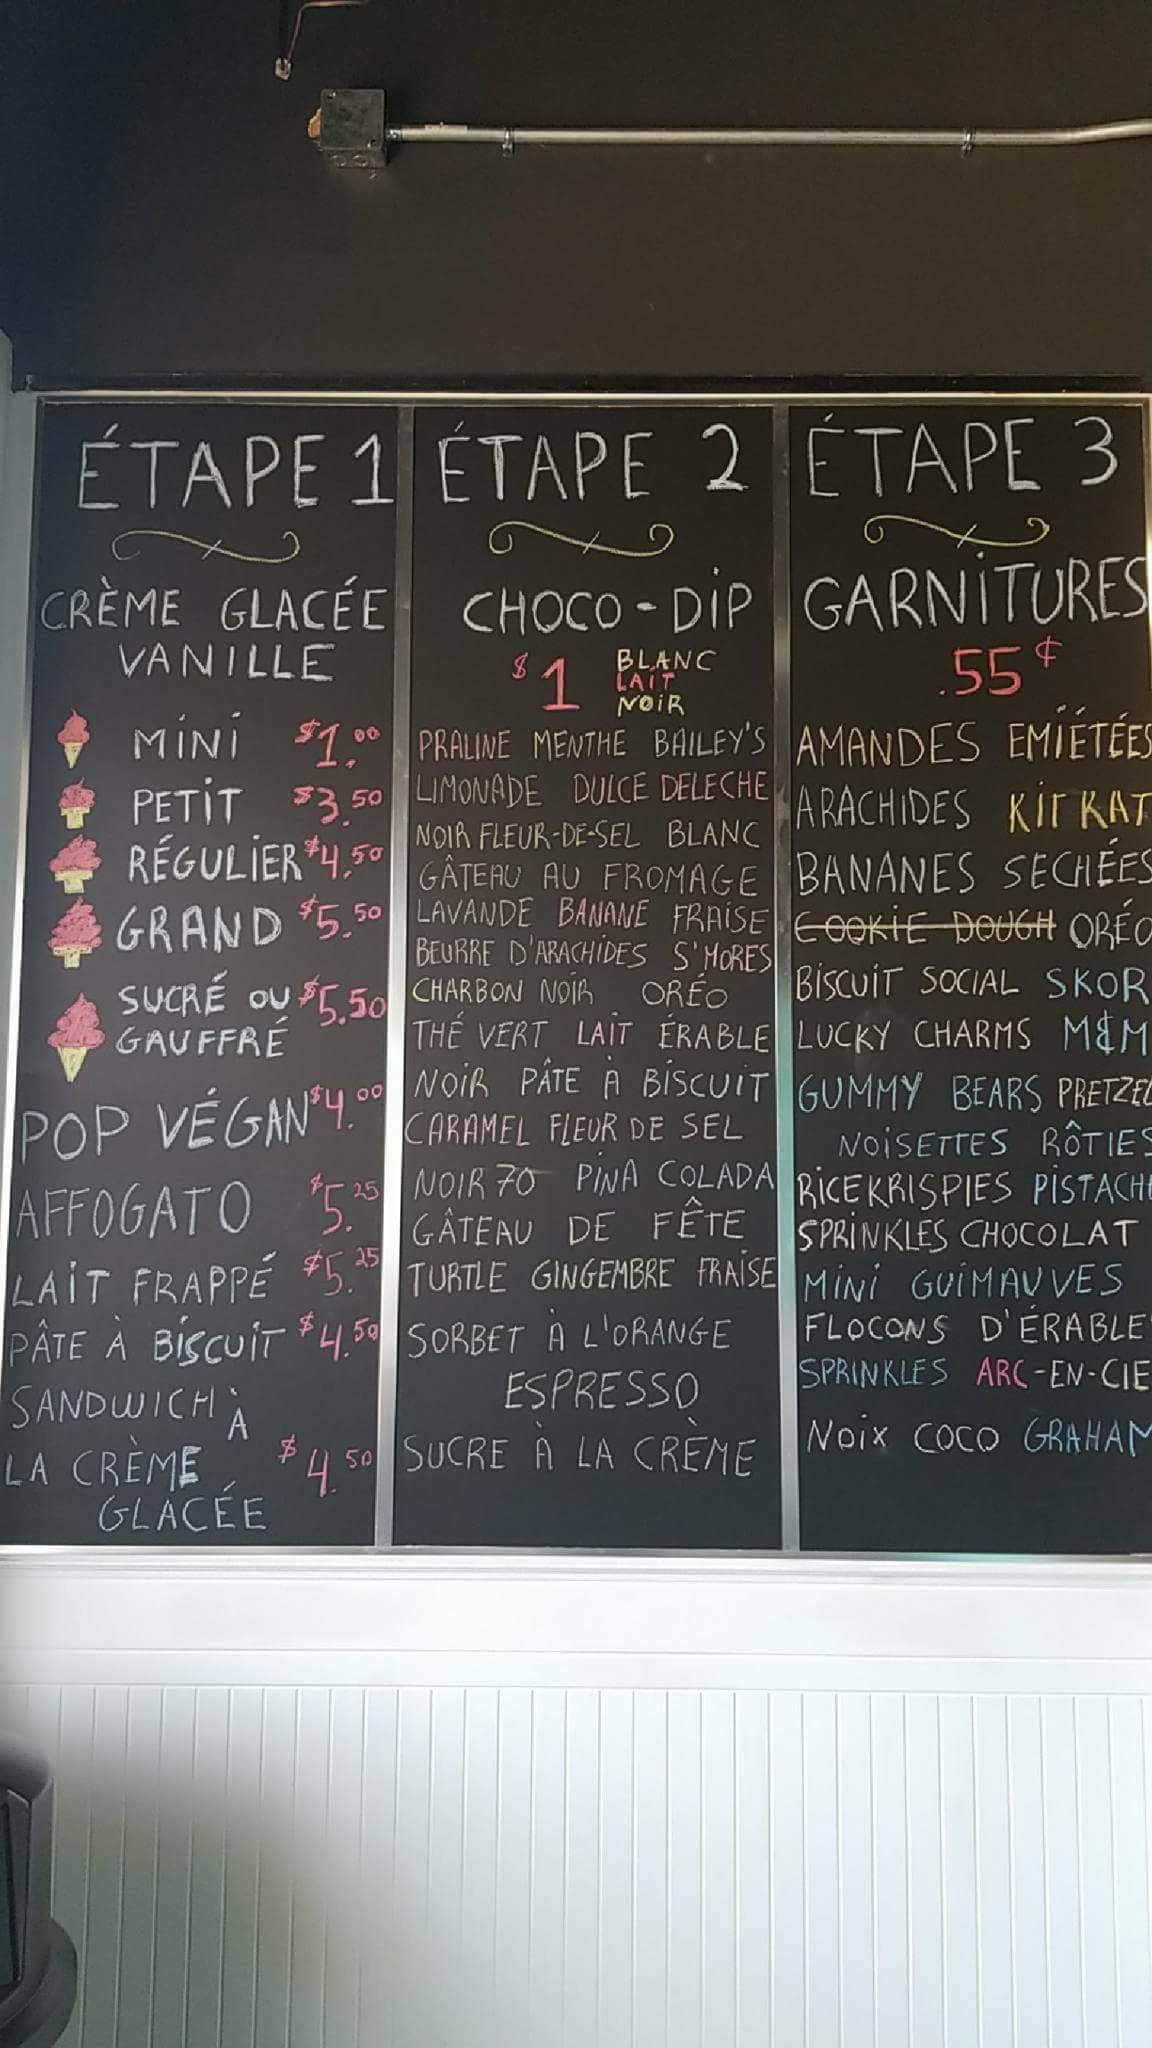 ÉTAPE 1
CRÈME GLACÉE
VANILLE
MINI $1.00
PETIT $3.50
RÉGULIER $4.50
GRAND $5.50
SUCRÉ OU $5.50
GAUFFRÉ
POP VÉGAN $4.00
AFFOGATO $5.25
LAIT FRAPPÉ $5.25
PÂTE À BISCUIT $4.50
SANDWICH À
LA CRÈME $4.50
GLACÉE
ÉTAPE 2
CHOCO-DIP
$1 BLANC
LAIT
NOIR
PRALINE MENTHE BAILEY'S
LIMONADE DULCE DELECHE
NOIR FLEUR-DE-SEL BLANC
GÂTEAU AU FROMAGE
LAVANDE BANANE FRAISE
BEURRE D'ARACHIDES S'MORES
CHARBON NOIR ORÉO
THÉ VERT LAIT ÉRABLE
NOIR PÂTE À BISCUIT
CARAMEL FLEUR DE SEL
NOIR 70 PINA COLADA
GÂTEAU DE FÊTE
TURTLE GINGEMBRE FRAISE
SORBET À L'ORANGE
ESPRESSO
SUCRE À LA CRÈME
ÉTAPE 3
GARNITURES
.55¢
AMANDES EMIÉTÉES
ARACHIDES KIT KAT
BANANES SECHÉES
COOKIE DOUGH ORÉO
BISCUIT SOCIAL SKOR
LUCKY CHARMS M&M
GUMMY BEARS PRETZEL
NOISETTES RÔTIES
RICEKRISPIES PISTACHE
SPRINKLES CHOCOLAT
MINI GUIMAUVES
FLOCONS D'ÉRABLE
SPRINKLES ARC-EN-CIE
NOIX COCO GRAHAM